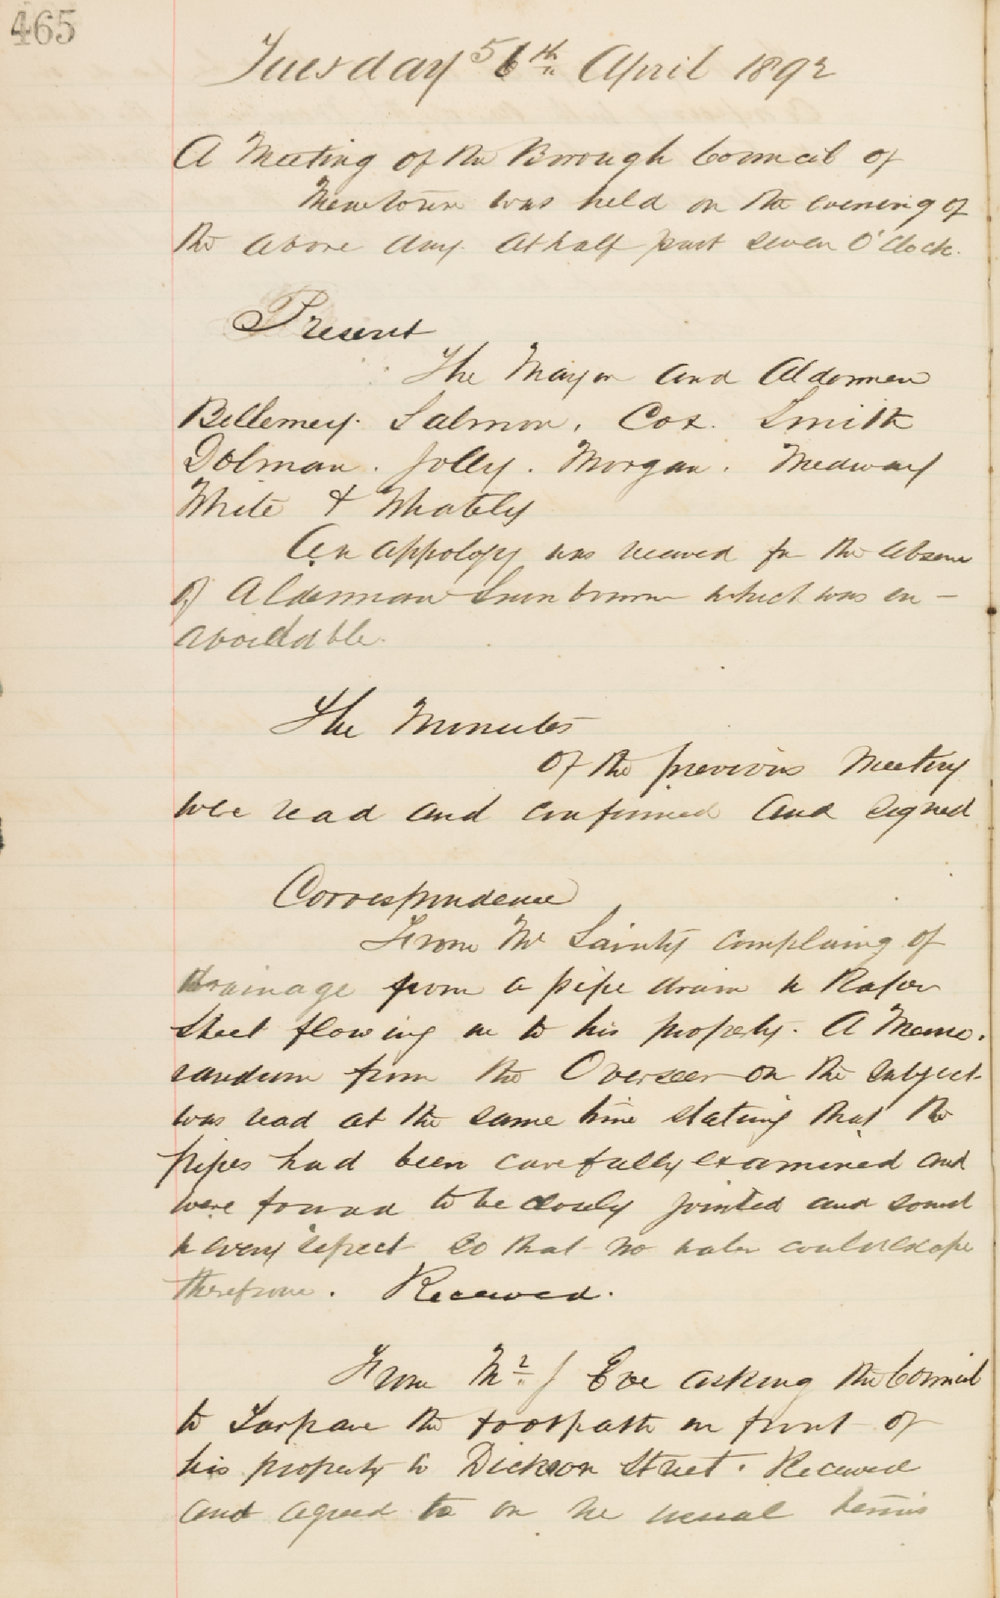 465
Tuesday 5 6th April 1892
A Meeting of the Borough Council of
Newtown was held on the evening of
the above day. at half past seven O'Clock.
Present
The Mayor and Aldermen
Bellemey. Salmon. Cox. Smith
Dolman. Jolly. Morgan. Medway
White & Whately
An appology was receved for the absence
of Alderman which was un-
avoidable.
The Minutes
Of the previous Meeting
were read and confirmed and signed
Correspondence
From Mr Sainty complaing of
drainage from a pipe drain in
Street flowing in to his property. A Memo.
randum from the Overseer on the subject
was read at the same time stating that the
pipes had been carefully examined and
were found to be closely jointed and sound
in every respect so that no water could escape
therefrom. Received.
From Mr J Eve asking the Council
to Tarpave the footpath in front of
his property in Dickson Street. Received
and agreed to on the usual terms